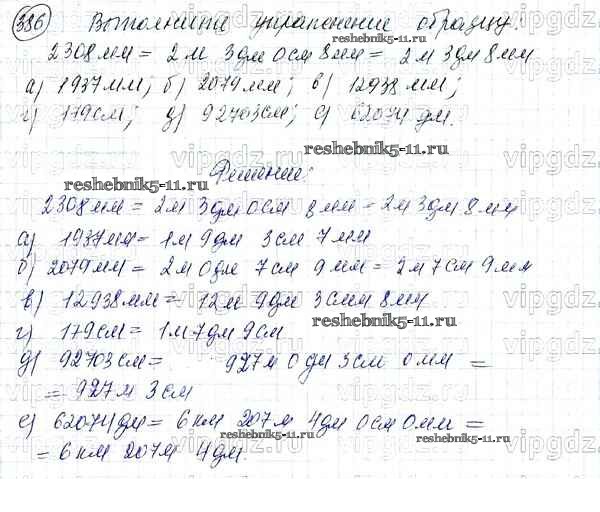 386 Выполните упражнение образцу:
2308мм = 2м 3дм 0см 8мм = 2м 3дм 8мм
а) 1937мм; б) 2079мм; в) 12938мм;
г) 179см; д) 92703см; е) 62074дм.
Решение:
reshebnik5-11.ru
2308мм = 2м 3дм 0см 8мм = 2м 3дм 8мм
а) 1937мм = 1м 9дм 3см 7мм
б) 2079мм = 2м 0дм 7см 9мм = 2м 7см 9мм
в) 12938мм = 12м 9дм 3см 8мм
г) 179см = 1м 7дм 9см
д) 92703см = 927м 0дм 3см 0мм =
= 927м 3см
е) 62074дм = 6км 207м 4дм 0см 0мм =
= 6км 207м 4дм.
reshebnik5-11.ru
reshebnik5-11.ru
reshebnik5-11.ru
reshebnik5-11.ru
vipgdz
vipgdz
vipgdz